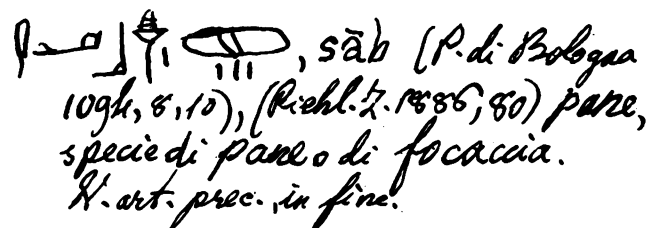 , sāb (P. di Bologna
1094, 8, 10), (Piehl. Z. 1886, 80) pane,
specie di pane o di focaccia.
V. art. prec., in fine.